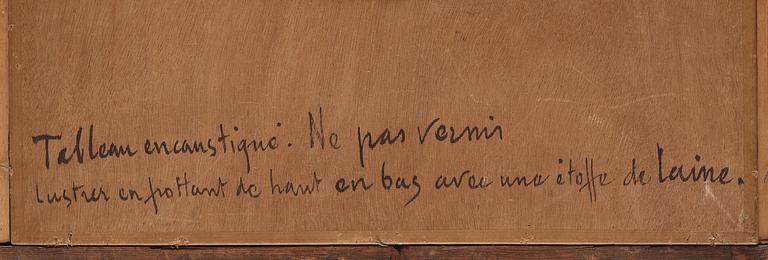 Tableau encaustiqué. Ne pas vernir
lustrer en frottant de haut en bas avec une étoffe de laine.